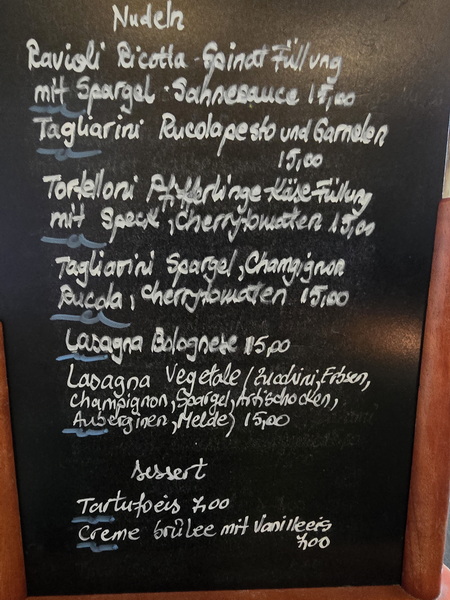 Nudeln
Ravioli Ricotta-Spinat Füllung
mit Spargel-Sahnesauce 15,00
Tagliarini Rucolapesto und Garnelen
15,00
Tortelloni Pfifferlinge-Käse-Füllung
mit Speck, Cherrytomaten 15,00
Tagliarini Spargel, Champignon
Rucola, Cherrytomaten 15,00
Lasagna Bolognese 15,00
Lasagna Vegetale (Zucchini, Erbsen,
Champignon, Spargel, Artischocken,
Auberginen, Melde) 15,00
Dessert
Tartufoeis 7,00
Creme brûlee mit Vanilleeis
7,00